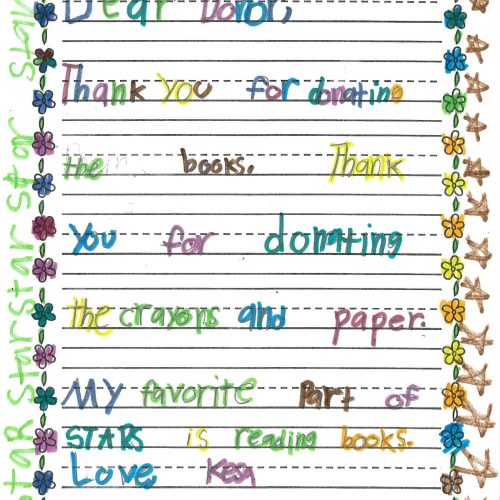 Dear Donor,
Thank you for donating
the books. Thank
you for donating
the crayons and paper.
My favorite Part of
STARS is reading books.
Love, Kesa
star star star star star